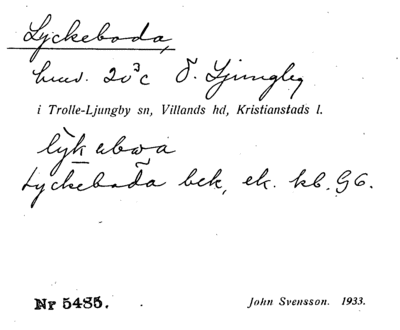 Lyckeboda,
huvud. 20³c Ö. Ljungby
i Trolle-Ljungby sn, Villands hd, Kristianstads l.
Lyckeboda bek, ek. kb. G6.
Nr 5485. John Svensson. 1933.